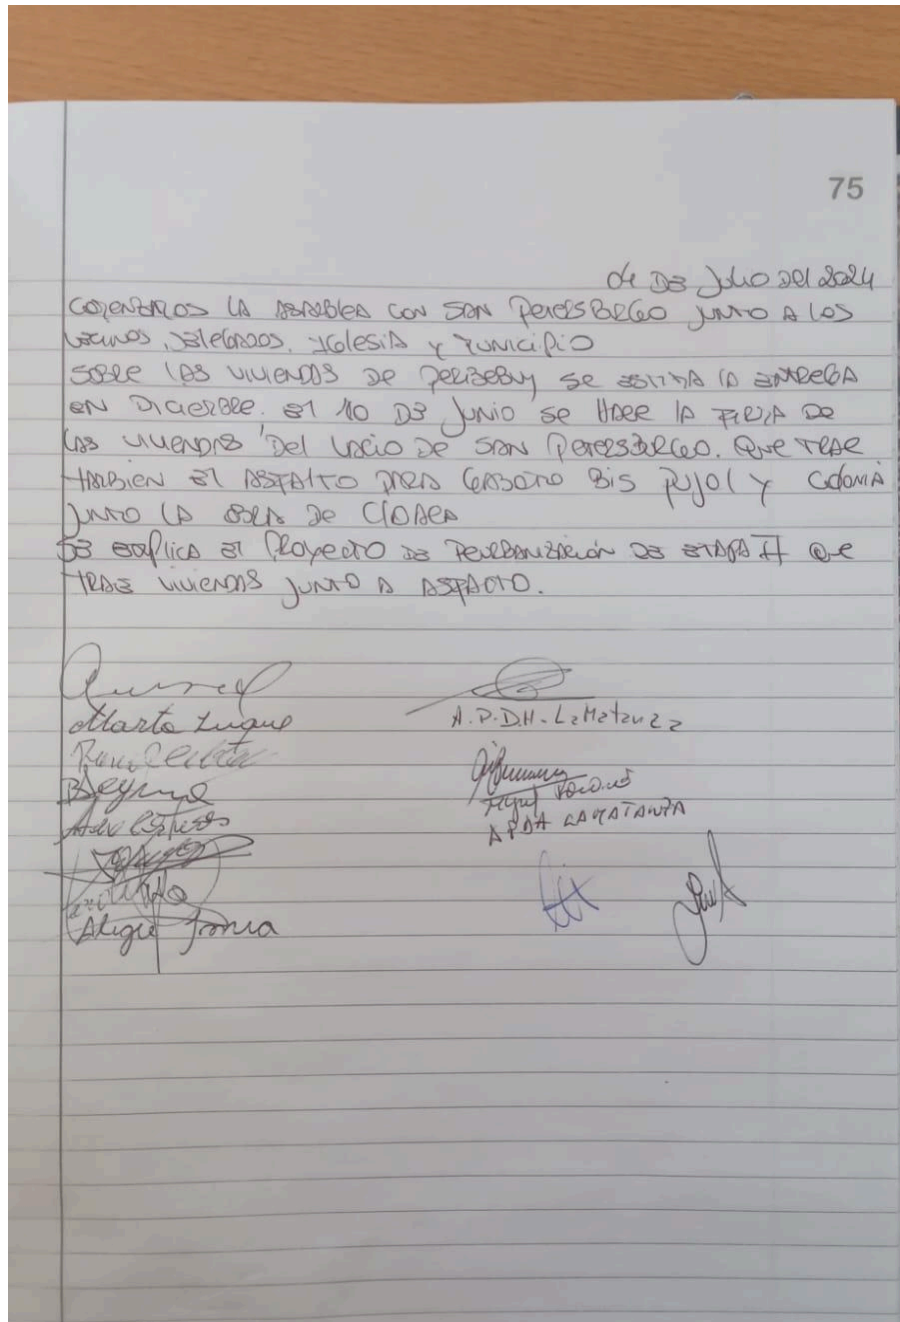 75
04 DE Julio Del 2024
COMENZAMOS LA ASAMBLEA CON SAN PETERSBURGO JUNTO A LOS
VECINOS, DELEGADOS, IGLESIA Y MUNICIPIO
SOBRE LAS VIVIENDAS DE PERIBEBUY SE ESTIMA LA ENTREGA
EN DICIEMBRE. El 10 DE JUNIO SE HACE LA FIRMA DE
LAS VIVIENDAS DEL VACIO DE SAN PETERSBURGO. QUE TRAE
TAMBIEN El ASFALTO PARA BIS PUJOL Y COLONIA
JUNTO LA OBRA DE CLOACA
SE EXPLICA El PROYECTO DE REURBANIZACIÓN DE ETAPA II QUE
TRAE VIVIENDAS JUNTO A ASFALTO.
Marta Luque
A.P.D.H - La Matanza
APDH LA MATANZA